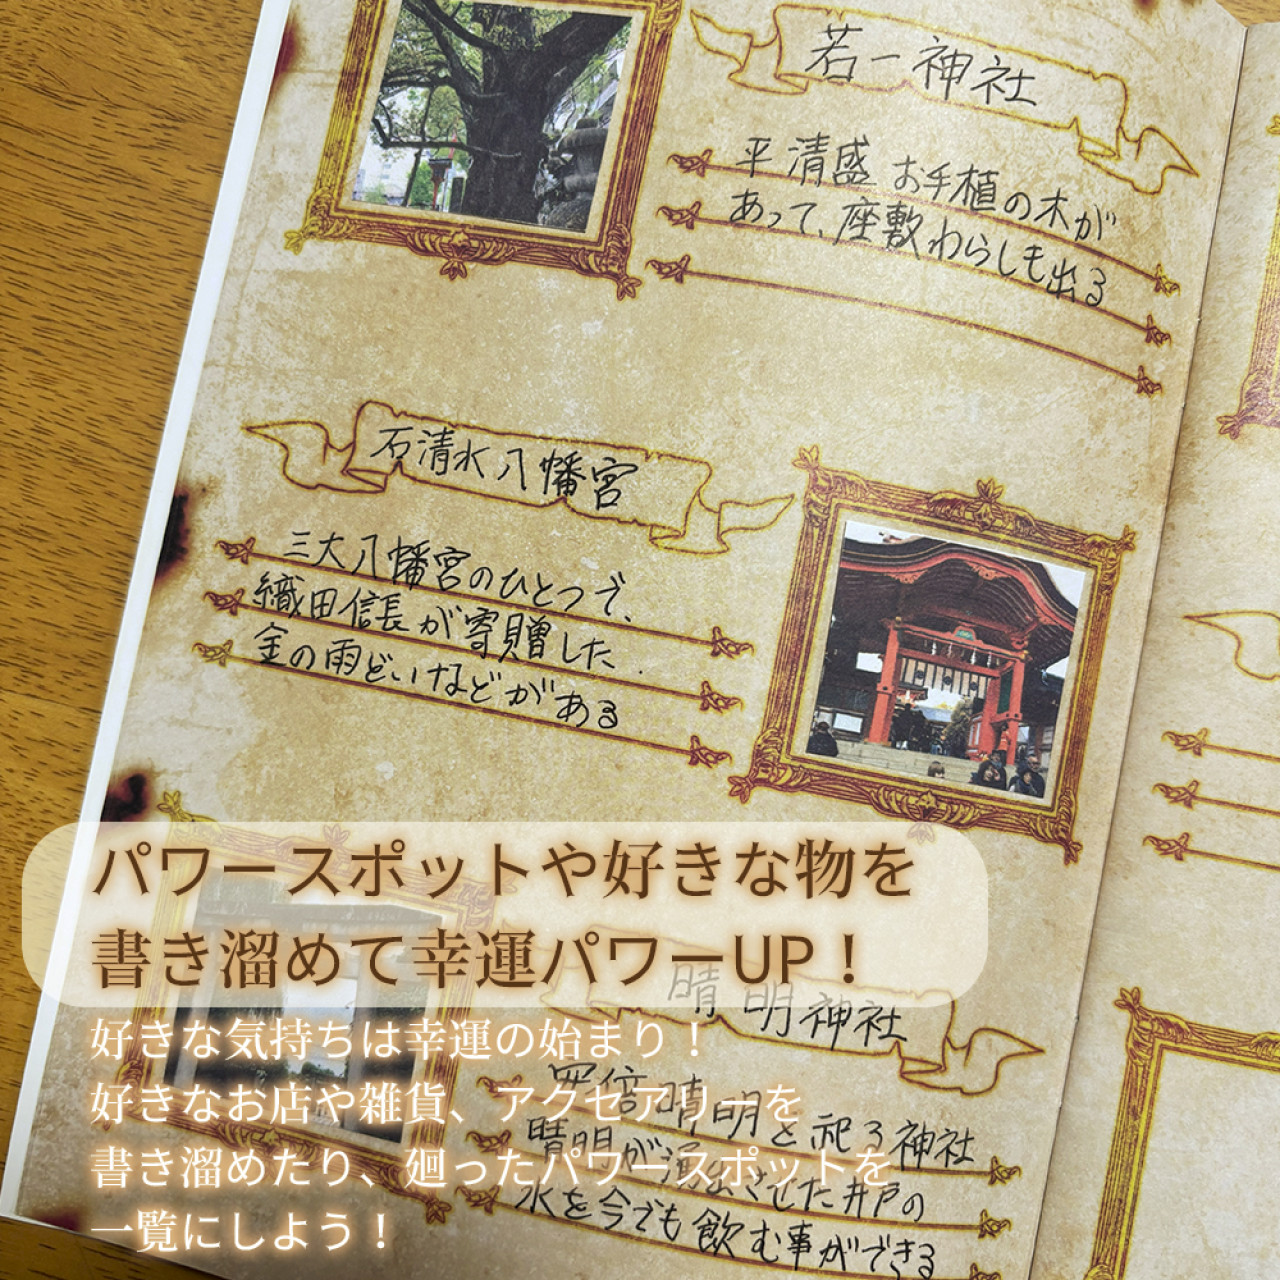 若一神社
平清盛お手植の木が
あって、座敷わらしも出る
石清水八幡宮
三大八幡宮のひとつで、
織田信長が寄贈した
金の雨どいなどがある
パワースポットや好きな物を
書き溜めて幸運パワーUP！
晴明神社
好きな気持ちは幸運の始まり！
好きなお店や雑貨、アクセアリーを
書き溜めたり、廻ったパワースポットを
一覧にしよう！
晴明を祀る神社
晴明が湧出させた井戸の
水を今でも飲む事ができる